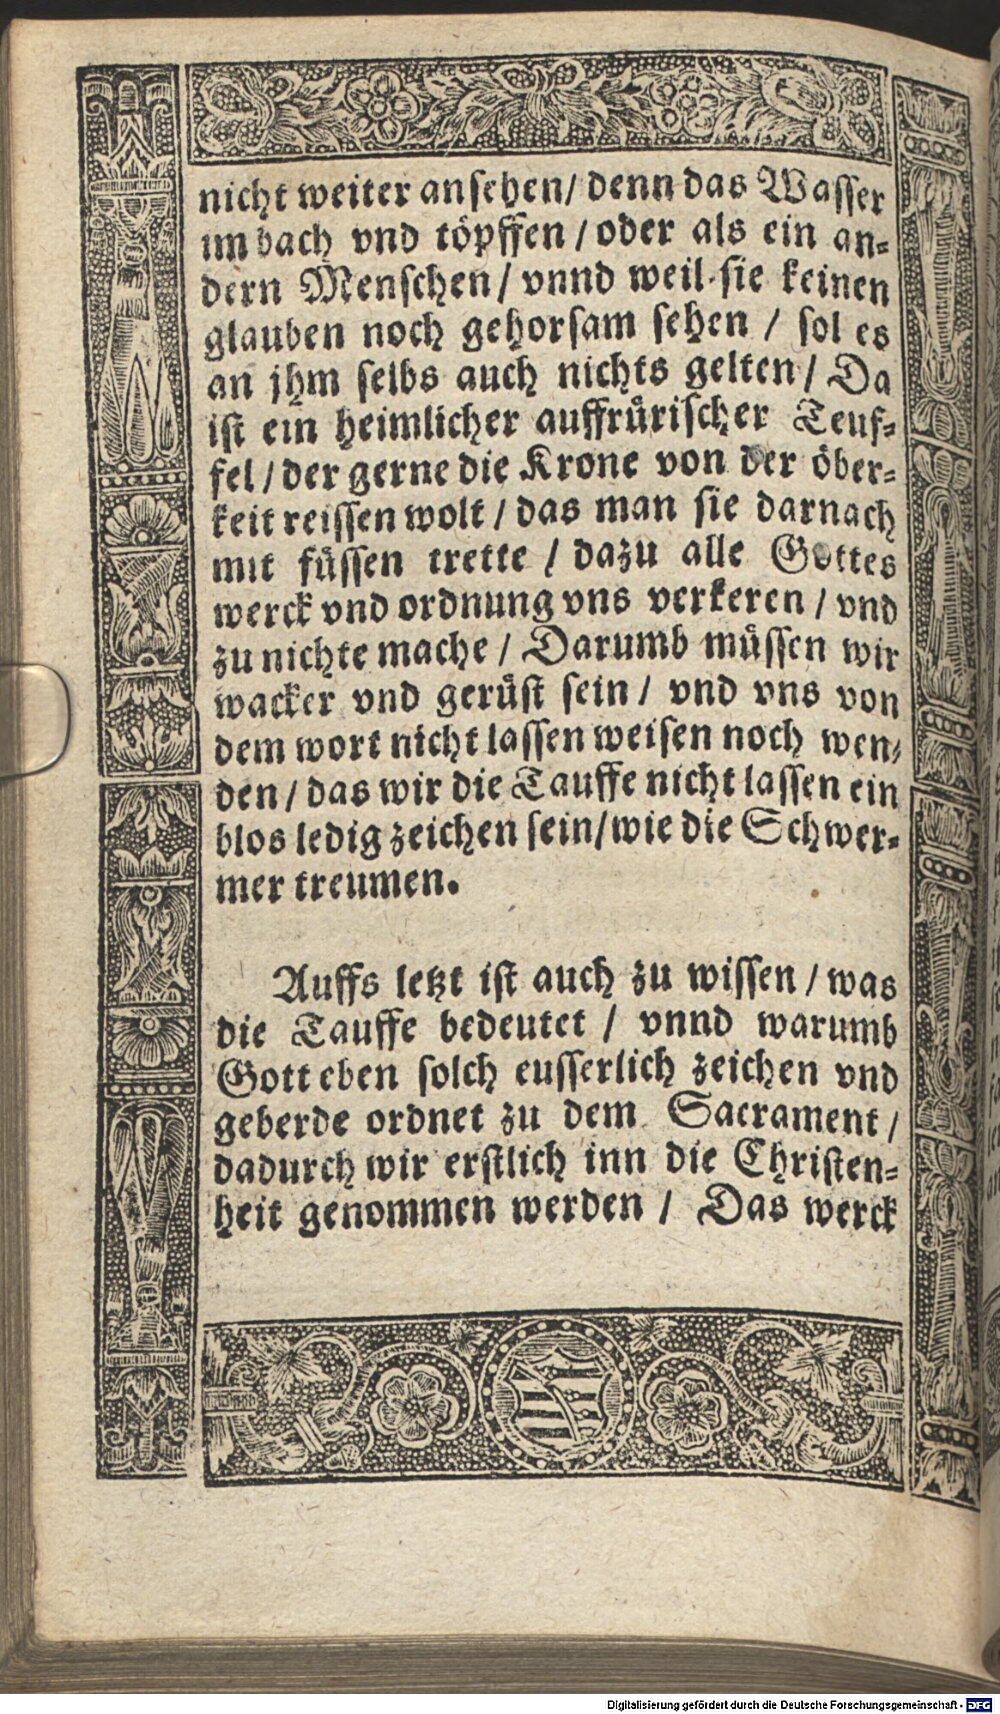 nicht weiter ansehen/ denn das Wasser
im bach vnd töpffen / oder als ein an-
dern Menschen / vnnd weil sie keinen
glauben noch gehorsam sehen / sol es
an jhm selbs auch nichts gelten / Da
ist ein heimlicher auffrürischer Teuf-
fel / der gerne die Krone von der öber-
keit reissen wolt / das man sie darnach
mit füssen trette / dazu alle Gottes
werck vnd ordnung vns verkeren / vnd
zu nichte mache / Darumb müssen wir
wacker vnd gerüst sein / vnd vns von
dem wort nicht lassen weisen noch wen-
den / das wir die Tauffe nicht lassen ein
blos ledig zeichen sein/ wie die Schwer-
mer treumen.
Auffs letzt ist auch zu wissen / was
die Tauffe bedeutet / vnnd warumb
Gott eben solch eusserlich zeichen vnd
geberde ordnet zu dem Sacrament /
dadurch wir erstlich inn die Christen-
heit genommen werden / Das werck
Digitalisierung gefördert durch die Deutsche Forschungsgemeinschaft - DFG